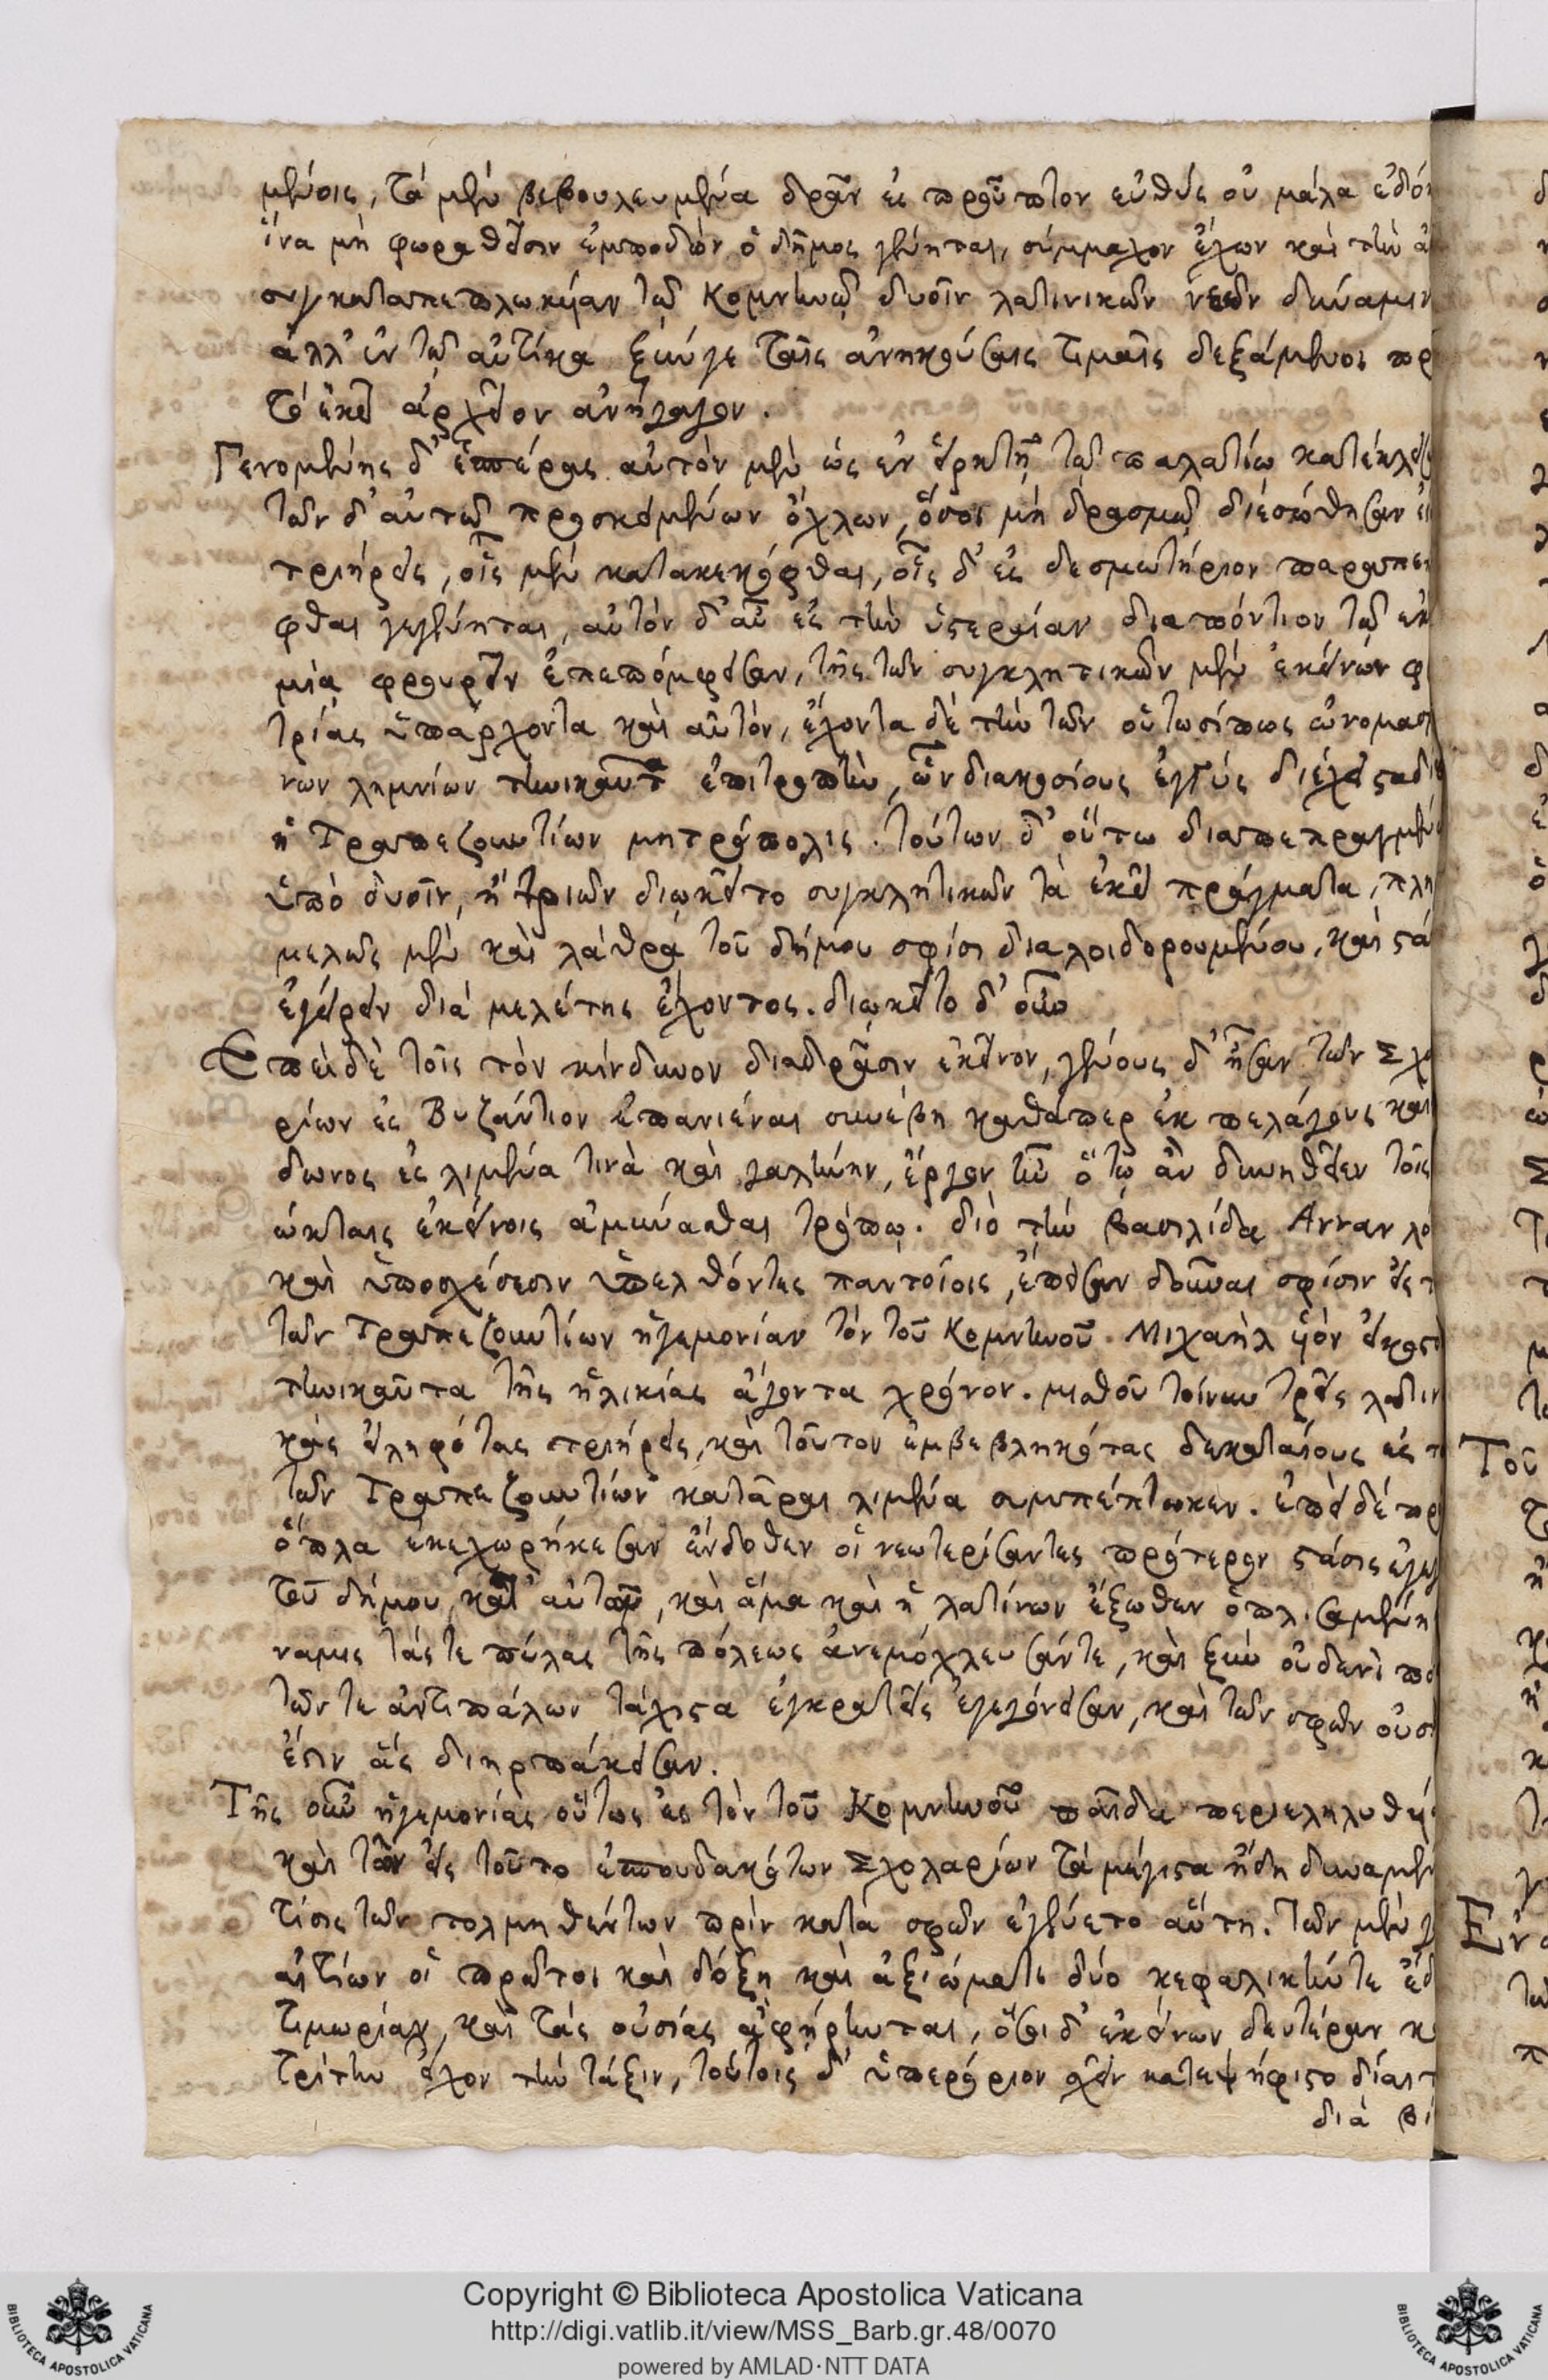 μένοις, τὰ μὲν βεβουλευμένα δρᾶν ἐς προῦπτον εὐθὺς οὐ μάλα
ἵνα μὴ φωραθεῖσιν ἐμποδὼν ὁ δῆμος γένηται, σύμμαχον ἔχων καὶ τὴν
συγκαταπεπλωκυῖαν τῷ Κομνηνῷ δυσῖν λατινικῶν νεῶν δύναμιν
ἀλλ' ἐν τῷ αὐτίκα ξύν γε ταῖς ἀνηκούσαις τιμαῖς δεξάμενοι
τὸ ἐκεῖ ἀρχεῖον ἀνήγαγον.
Γενομένης δ' ἑσπέρας αὐτὸν μὲν ὡς ἐν εἱρκτῇ τῷ παλατίῳ
τῶν δ' αὐτῷ προσκειμένων ὄχλων, ὅσοι μὴ δρασμῷ διεσώθησαν
τριήρεις, οἷς μὲν κατακεκόφθαι, οἷς δ' ἐς δεσμωτήριον
φθαι γεγένηται, αὐτὸν δ' αὖ ἐς τὴν ὑστεραίαν διαπόντιον τῷ
μιᾷ φρουρεῖν ἐπεπόμφεισαν, τῆς τῶν συγκλητικῶν μὲν ἐκείνων
τρίας ὑπάρχοντα καὶ αὐτὸν, ἔχοντα δὲ τὴν τῶν οὑτωσίπως
νων λημνίων τηνικαῦτ' ἐπιτροπὴν, ὧν διακοσίους ἐγγὺς διέχει
ἡ Τραπεζουντίων μητρόπολις. τούτων δ' οὕτω
ὑπὸ δυσῖν, ἢ τριῶν διῳκεῖτο συγκλητικῶν τὰ ἐκεῖ πράγματα, πλη
μελῶς μὲν καὶ λάθρᾳ τοῦ δήμου σφίσι διαλοιδορουμένου, καὶ
ἐγείρειν διὰ μελέτης ἔχοντος. διῳκεῖτο δ' οὖν
Ἐπεὶ δὲ τοῖς τὸν κίνδυνον διαδρᾶσιν ἐκεῖνον, γένους δ' ἦσαν τῶν
ρίων ἐς Βυζάντιον ἐπανιέναι συνέβη καθάπερ ἐκ πελάγους καὶ
δωνος ἐς λιμένα τινὰ καὶ γαλήνην, ἔργον ἦν ὅτῳ ἂν δυνηθεῖεν τοὺς
ώκτας ἐκείνοις ἀμύνασθαι τρόπῳ. διὸ τὴν βασιλίδα Ἄνναν
καὶ ὑποσχέσεσιν ὑπελθόντες παντοίοις, ἔπεισαν δοῦναι σφίσιν εἰς
τῶν Τραπεζουντίων ἡγεμονίαν τὸν τοῦ Κομνηνοῦ. Μιχαὴλ υἱὸν
τηνικαῦτα τῆς ἡλικίας ἄγοντα χρόνον. μισθοῦ τοίνυν τρεῖς
κὰς εἰληφότας τριήρεις, καὶ τοῦτον ἐμβεβληκότας δεκαταίους ἐς
τῶν Τραπεζουντίων κατᾶραι λιμένα συμπέπτωκεν. ἐπεὶ δὲ
ὅπλα ἐκεχωρήκεσαν ἔνδοθεν οἱ νεωτερίσαντες πρότερον στάσις
τοῦ δήμου, κατ' αὐτῶν, καὶ ἅμα καὶ ἡ λατίνων ἔξωθεν
ναμις τάς τε πύλας τῆς πόλεως ἀνεμόχλευσάν τε, καὶ ξὺν οὐδενὶ
τῶν τε ἀντιπάλων τάχιστα ἐγκρατεῖς ἐγεγόνεισαν, καὶ τῶν σφῶν
ἔσιν ἃς διηρπάκεισαν.
Τῆς οὖν ἡγεμονίας οὕτως ἐς τὸν τοῦ Κομνηνοῦ παῖδα
καὶ τῶν εἰς τοῦτο ἐσπουδακότων Σχολαρίων τὰ μέγιστα ἤδη
τίσις τῶν τολμηθέντων πρὶν κατὰ σφῶν ἐγένετο αὕτη. τῶν μὲν
αἰτίων οἱ πρῶτοι καὶ δόξῃ καὶ ἀξιώματι δύο κεφαλικήν τε
τιμωρίαν, καὶ τὰς οὐσίας ἀφῄρηνται, ὅσοι δ' ἐκείνων δευτέραν
τρίτην εἶχον τὴν τάξιν, τούτοις δ' ὑπερόριον κατεψήφιστο
διὰ
Copyright © Biblioteca Apostolica Vaticana
http://digi.vatlib.it/view/MSS_Barb.gr.48/0070
powered by AMLAD·NTT DATA
BIBLIOTECA APOSTOLICA VATICANA
BIBLIOTECA APOSTOLICA VATICANA